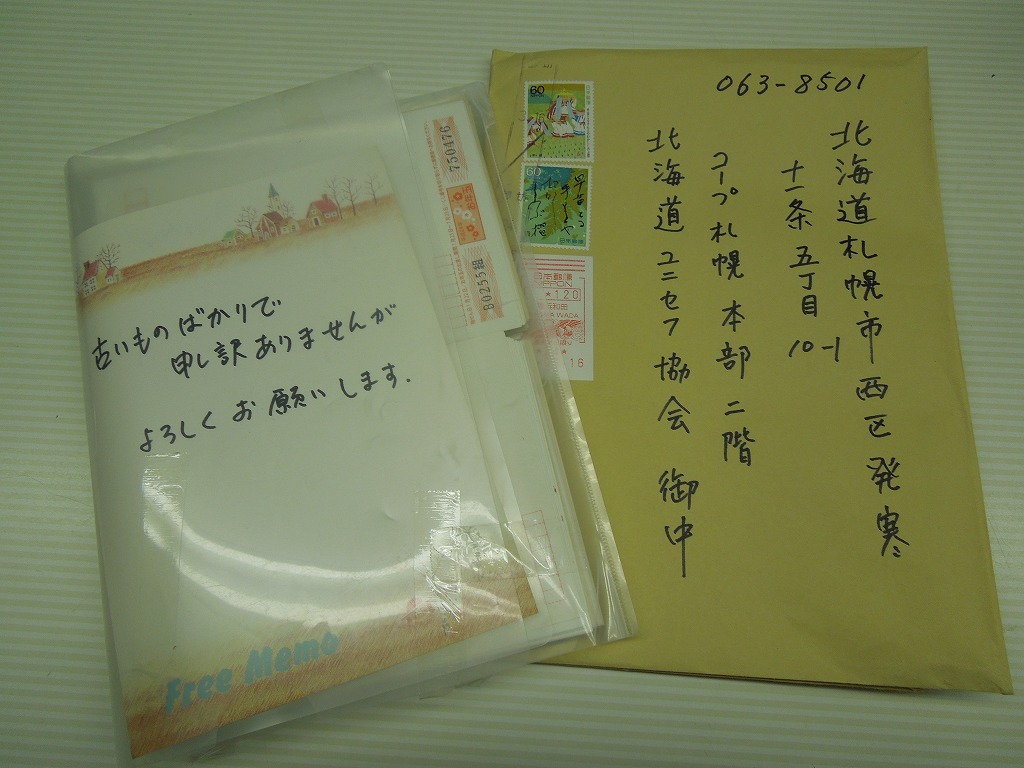 古いものばかりで
申し訳ありませんが
よろしくお願いします.
Free Memo
750476
B0255組
60
60
日本郵便
120
16
063-8501
北海道札幌市西区発寒
十一条五丁目10-1
コープ札幌本部二階
北海道ユニセフ協会 御中